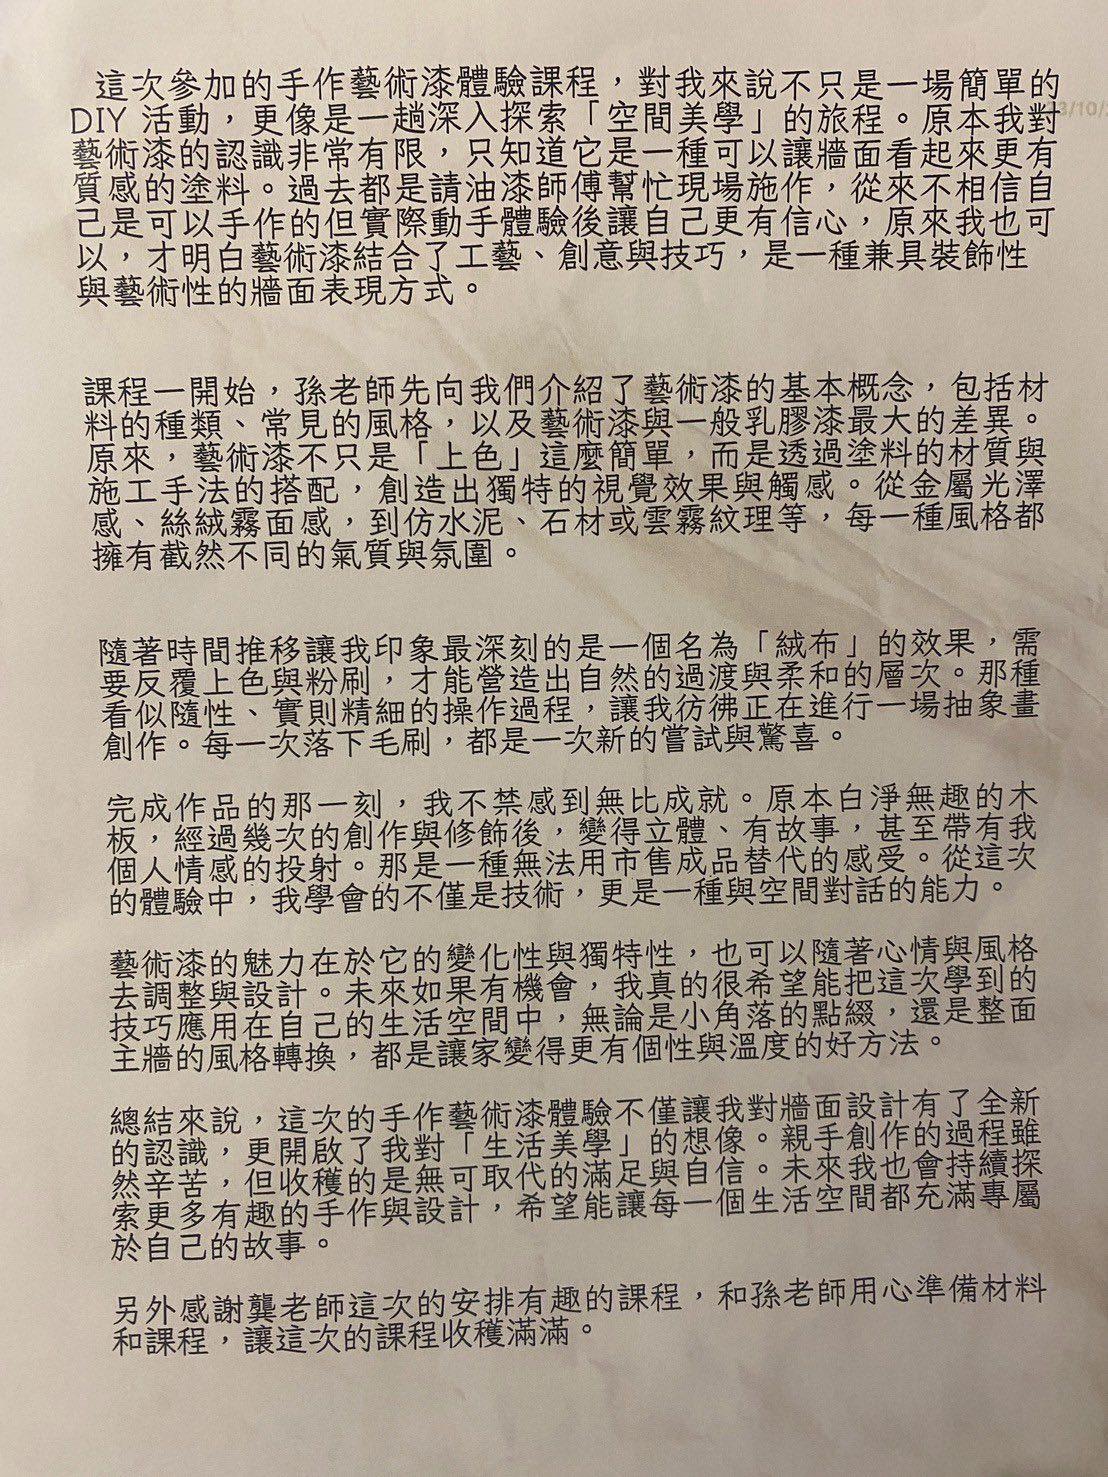 這次參加的手作藝術漆體驗課程，對我來說不只是一場簡單的
DIY 活動，更像是一趟深入探索「空間美學」的旅程。原本我對
藝術漆的認識非常有限，只知道它是一種可以讓牆面看起來更有
質感的塗料。過去都是請油漆師傅幫忙現場施作，從來不相信自
己是可以手作的但實際動手體驗後讓自己更有信心，原來我也可
以，才明白藝術漆結合了工藝、創意與技巧，是一種兼具裝飾性
與藝術性的牆面表現方式。
課程一開始，孫老師先向我們介紹了藝術漆的基本概念，包括材
料的種類、常見的風格，以及藝術漆與一般乳膠漆最大的差異。
原來，藝術漆不只是「上色」這麼簡單，而是透過塗料的材質與
施工手法的搭配，創造出獨特的視覺效果與觸感。從金屬光澤
感、絲絨霧面感，到仿水泥、石材或雲霧紋理等，每一種風格都
擁有截然不同的氣質與氛圍。
隨著時間推移讓我印象最深刻的是一個名為「絨布」的效果，需
要反覆上色與粉刷，才能營造出自然的過渡與柔和的層次。那種
看似隨性、實則精細的操作過程，讓我彷彿正在進行一場抽象畫
創作。每一次落下毛刷，都是一次新的嘗試與驚喜。
完成作品的那一刻，我不禁感到無比成就。原本白淨無趣的木
板，經過幾次的創作與修飾後，變得立體、有故事，甚至帶有我
個人情感的投射。那是一種無法用市售成品替代的感受。從這次
的體驗中，我學會的不僅是技術，更是一種與空間對話的能力。
藝術漆的魅力在於它的變化性與獨特性，也可以隨著心情與風格
去調整與設計。未來如果有機會，我真的很希望能把這次學到的
技巧應用在自己的生活空間中，無論是小角落的點綴，還是整面
主牆的風格轉換，都是讓家變得更有個性與溫度的好方法。
總結來說，這次的手作藝術漆體驗不僅讓我對牆面設計有了全新
的認識，更開啟了我對「生活美學」的想像。親手創作的過程雖
然辛苦，但收穫的是無可取代的滿足與自信。未來我也會持續探
索更多有趣的手作與設計，希望能讓每一個生活空間都充滿專屬
於自己的故事。
另外感謝龔老師這次的安排有趣的課程，和孫老師用心準備材料
和課程，讓這次的課程收穫滿滿。